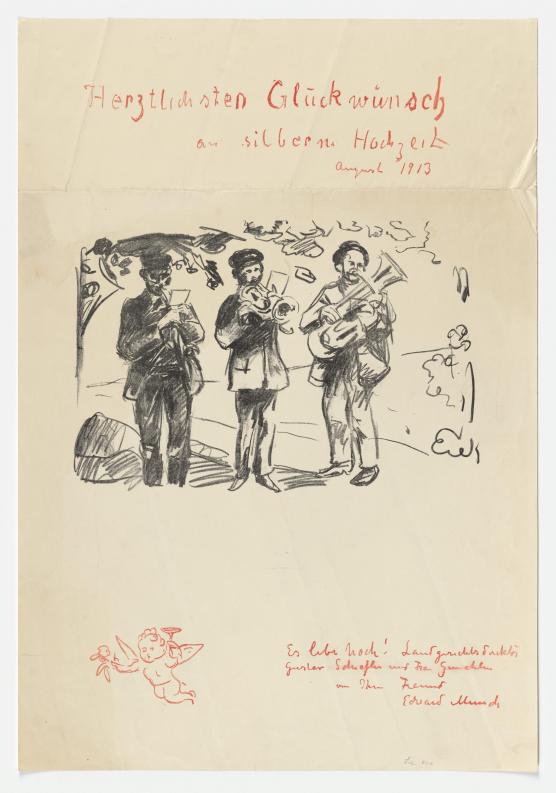 Herztlichsten Glückwünsch
silbern Hochzeit
August 1913
Es lebe Hoch! Landgerichtsdirektor
Gustav Schiefler und Frau Gemahlin
von Ihrem Freund
Edvard Munch